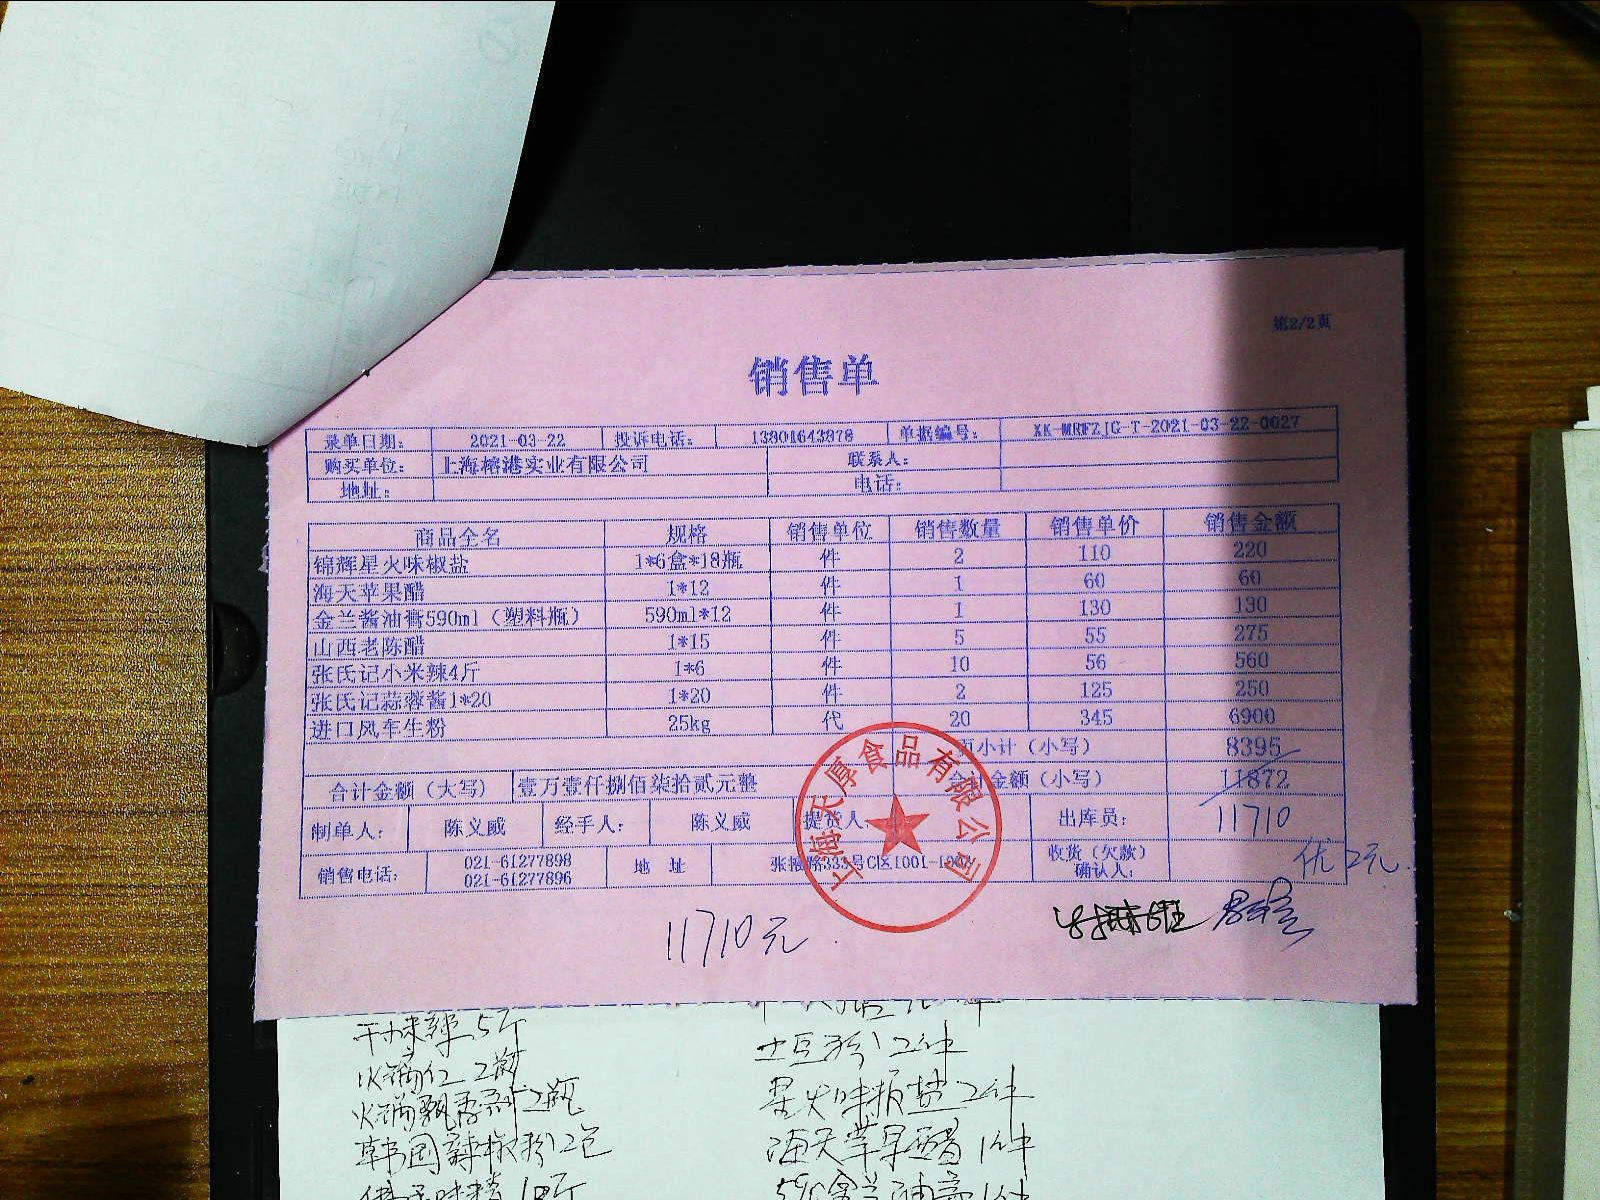 第2/2页
销售单
录单日期： 2021-03-22 投诉电话： 13801643878 单据编号： XK-MRFZJG-T-2021-03-22-0027
购买单位： 上海榕港实业有限公司 联系人：
地址： 电话：
商品全名 规格 销售单位 销售数量 销售单价 销售金额
锦辉星火味椒盐 1*6盒*18瓶 件 2 110 220
海天苹果醋 1*12 件 1 60 60
金兰酱油膏590ml（塑料瓶） 590ml*12 件 1 130 130
山西老陈醋 1*15 件 5 55 275
张氏记小米辣4斤 1*6 件 10 56 560
张氏记蒜蓉酱1*20 1*20 件 2 125 250
进口风车生粉 25kg 代 20 345 6900
页小计（小写） 8395
合计金额（大写） 壹万壹仟捌佰柒拾贰元整 合计金额（小写） 11872
制单人： 陈义威 经手人： 陈义威 提货人： 出库员： 11710
销售电话： 021-61277898 021-61277896 地 址 张掖路333号C区1001-100 收货（欠款）确认人：
优2元
上海天厚食品有限公司
11710元
5斤
火锅红2瓶
土豆粉12件
火锅飘香剂2瓶
星火味椒盐2件
韩国辣椒粉2包
海天苹果醋1件
味精10斤
590金兰油膏1件